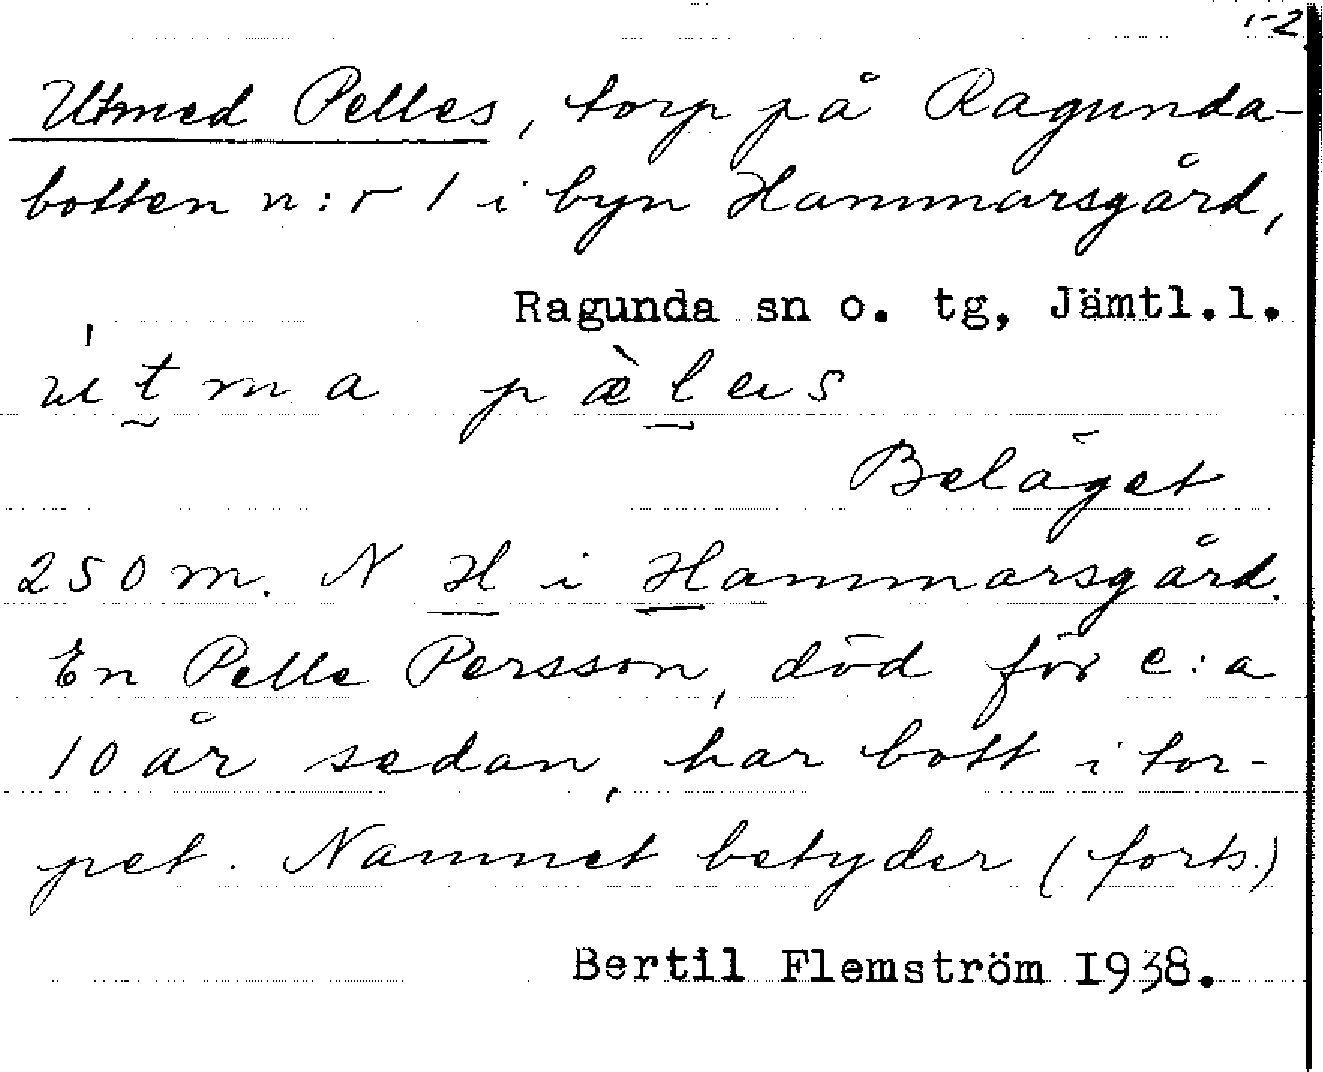 1-2
Utmed Pelles, torp på Ragunda-
botten n:r 1 i byn Hammarsgård,
Ragunda sn o. tg, Jämtl.l.
Beläget
250 m. N H i Hammarsgård.
En Pelle Persson, död för c:a
10 år sedan, har bott i tor-
pet. Namnet betyder (forts.)
Bertil Flemström 1938.